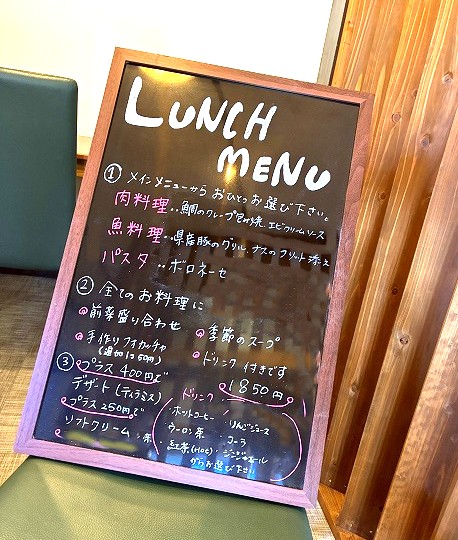 LUNCH
MENU
① メインメニューから おひとつお選び下さい。
肉料理‥鯛のクレープ包み焼、エビクリームソース
魚料理‥県産豚のグリル、ナスのフリット添え
パスタ‥ボロネーゼ
② 全てのお料理に
前菜盛り合わせ
季節のスープ
手作りフォカッチャ
(追加は60円)
ドリンク付きです
1850円
③ プラス400円で
デザート(ティラミス)
プラス250円で
ソフトクリーム
ドリンク
・ホットコーヒー ・りんごジュース
・ウーロン茶 ・コーラ
・紅茶(HOT) ・ジンジャエール
からお選び下さい